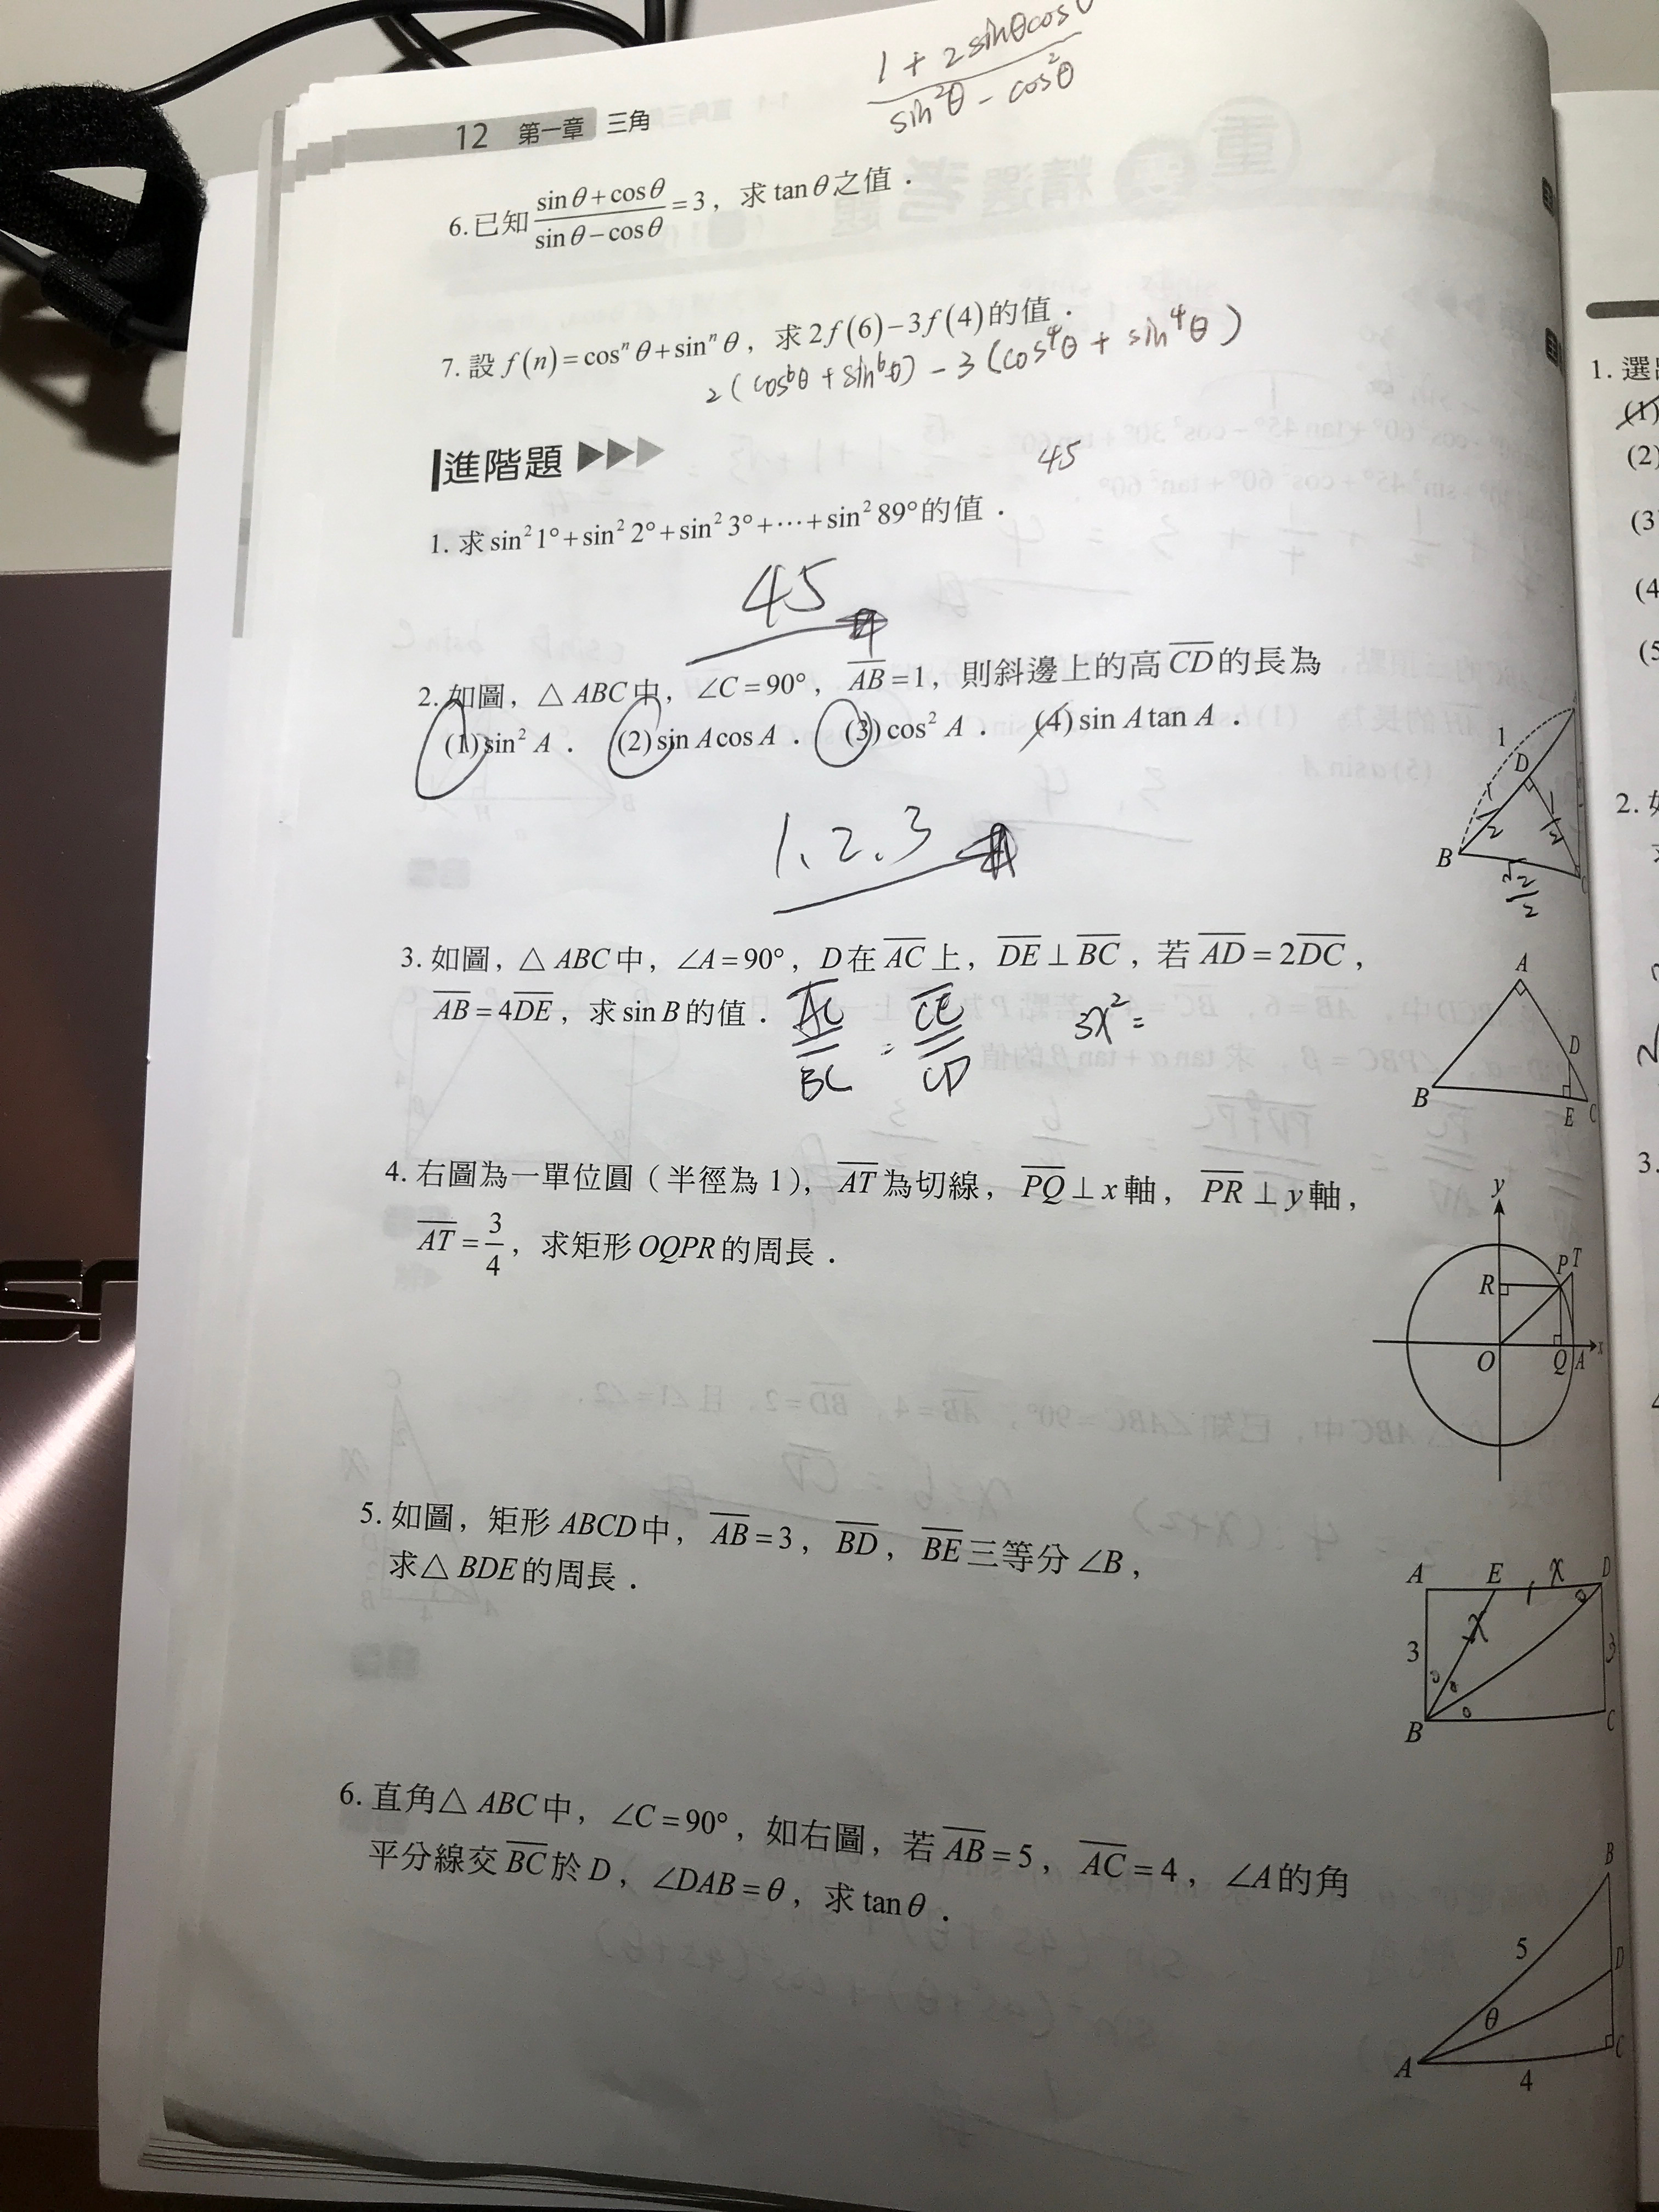 1 + 2 sinθcosθ
sin²θ - cos²θ
12 第一章 三角
6. 已知 (sin θ + cos θ)/(sin θ − cos θ) = 3，求 tan θ 之值．
7. 設 f(n) = cosⁿ θ + sinⁿ θ，求 2f(6) − 3f(4) 的值．
2(cos⁶θ + sin⁶θ) - 3(cos⁴θ + sin⁴θ)
進階題 ▶▶▶
45
1. 求 sin² 1° + sin² 2° + sin² 3° + ⋯ + sin² 89° 的值．
45
2. 如圖，△ ABC 中，∠C = 90°，A̅B̅ = 1，則斜邊上的高 C̅D̅ 的長為
(1) sin² A． (2) sin A cos A． (3) cos² A． (4) sin A tan A．
1
D
1/2
1/2
B
C
√2/2
1、2、3
3. 如圖，△ ABC 中，∠A = 90°，D 在 A̅C̅ 上，D̅E̅ ⊥ B̅C̅，若 A̅D̅ = 2D̅C̅，
A̅B̅ = 4D̅E̅，求 sin B 的值．
A̅C̅/BC = C̅E̅/CD
3x² =
A
D
B
E C
4. 右圖為一單位圓（半徑為 1），A̅T̅ 為切線，P̅Q̅ ⊥ x 軸，P̅R̅ ⊥ y 軸，
A̅T̅ = 3/4，求矩形 OQPR 的周長．
y
P T
R
O Q A x
5. 如圖，矩形 ABCD 中，A̅B̅ = 3，B̅D̅，B̅E̅ 三等分 ∠B，
求 △ BDE 的周長．
A E x D
x
3 3
B C
6. 直角 △ ABC 中，∠C = 90°，如右圖，若 A̅B̅ = 5，A̅C̅ = 4，∠A 的角
平分線交 B̅C̅ 於 D，∠DAB = θ，求 tan θ．
B
5
D
θ
A C
4
1. 選
(1)
(2)
(3
(4
(5
2. 如
3.